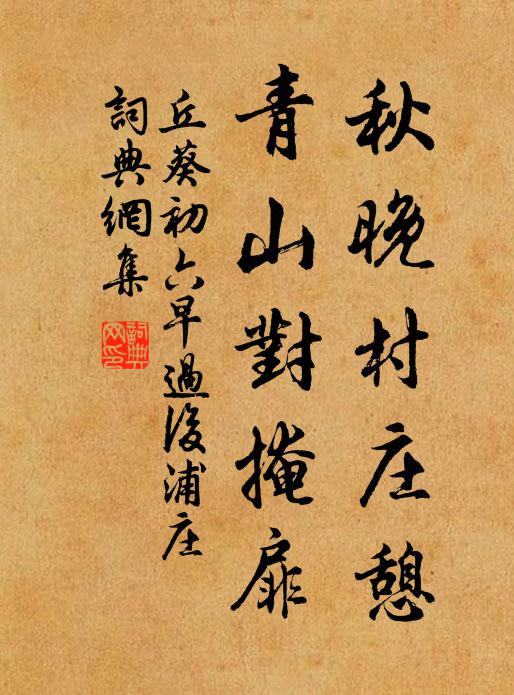 秋晚村庄憩
青山對掩扉
丘葵初六早過後浦庄
詞典網集
詞典网印